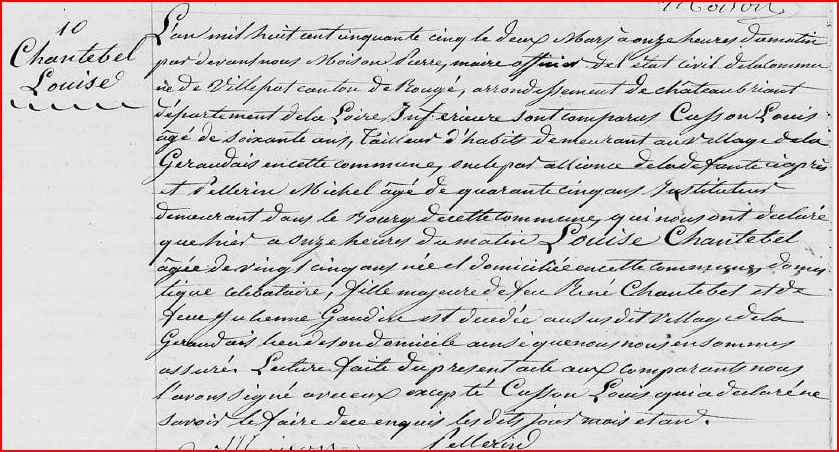 Moison
10
Chantebel
Louise
L'an mil huit cent cinquante cinq le deux Mars à onze heures du matin
par devant nous Moison Pierre, maire officier de l'état civil de la commu
ne de Villepot canton de Rougé, arrondissement de châteaubriant
département de la Loire Inférieure sont comparus Cusson Louis
âgé de soixante ans, Tailleur d'habits demeurant au village de la
Geraudais en cette commune, oncle par alliance de la défunte ci après
et Pellerin Michel âgé de quarante cinq ans Instituteur
demeurant dans le Bourg de cette commune, qui nous ont déclaré
que hier a onze heures du matin Louise Chantebel
âgée de vingt cinq ans née et domiciliée en cette commune, domes
tique célibataire, fille majeure de feu René Chantebel et de
feue Julienne Gaudin est décédée au susdit village de la
Geraudais lieu de son domicile ainsi que nous nous en sommes
assuré. Lecture faite du present acte aux comparants nous
l'avons signé avec eux excepté Cusson Louis qui a déclaré ne
savoir le faire de ce enquis les dits jour mois et an.
Moison Pellerin